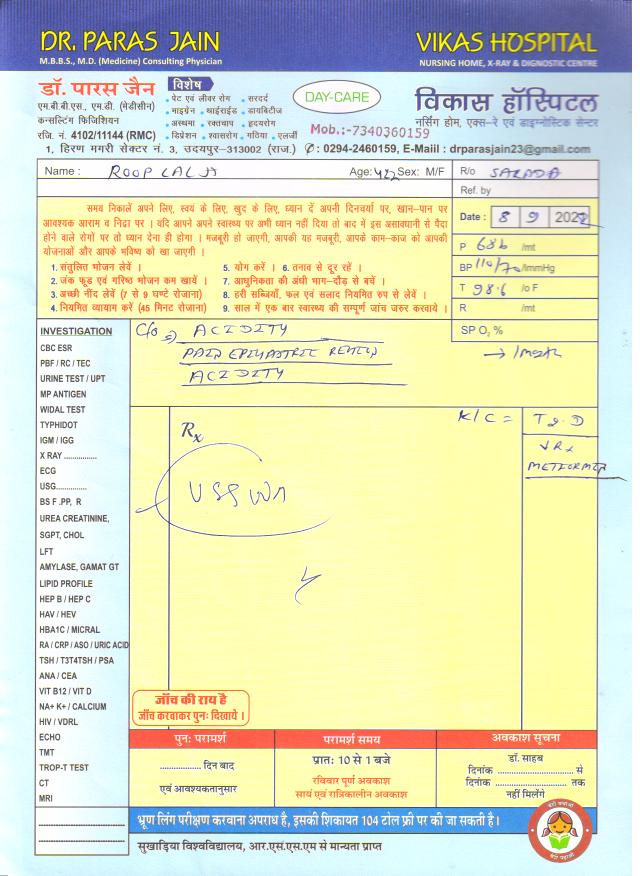 DR. PARAS JAIN
M.B.B.S., M.D. (Medicine) Consulting Physician
VIKAS HOSPITAL
NURSING HOME, X-RAY & DIGNOSTIC CENTRE
डॉ. पारस जैन
एम.बी.बी.एस., एम.डी. (मेडीसीन)
कन्सल्टिंग फिजिशियन
रजि. नं. 4102/11144 (RMC)
विशेष
• पेट एवं लीवर रोग • सरदर्द
• माइग्रेन • थाईराईड • डायबिटीज
• अस्थमा • रक्तचाप • हृदयरोग
• डिप्रेशन • श्वासरोग • गठिया • एलर्जी
DAY-CARE
Mob.:-7340360159
विकास हॉस्पिटल
नर्सिंग होम, एक्स-रे एवं डाइग्नोस्टिक सेन्टर
1, हिरण मगरी सेक्टर नं. 3, उदयपुर-313002 (राज.) ✆: 0294-2460159, E-Maiil : drparasjain23@gmail.com
Name : ROOP LAL JI Age: Sex: M/F R/o SARADA
Ref. by
Date : 8 9 2022
P 68 /mt
BP 110/70 /mmHg
T 98.6 /o F
R /mt
SP O2 %
समय निकालें अपने लिए, स्वयं के लिए, खुद के लिए, ध्यान दें अपनी दिनचर्या पर, खान-पान पर
आवश्यक आराम व निद्रा पर । यदि आपने अपने स्वास्थ्य पर अभी ध्यान नहीं दिया तो बाद में इस असावधानी से पैदा
होने वाले रोगों पर तो ध्यान देना ही होगा । मजबूरी हो जाएगी, आपकी यह मजबूरी, आपके काम-काज को आपकी
योजनाओं और आपके भविष्य को खा जाएगी ।
1. संतुलित भोजन लेवें ।
2. जंक फूड एवं गरिष्ठ भोजन कम खायें ।
3. अच्छी नींद लेवें (7 से 9 घण्टे रोजाना)
4. नियमित व्यायाम करें (45 मिनट रोजाना)
5. योग करें । 6. तनाव से दूर रहें ।
7. आधुनिकता की अंधी भाग-दौड़ से बचें ।
8. हरी सब्जियाँ, फल एवं सलाद नियमित रुप से लेवें ।
9. साल में एक बार स्वास्थ्य की सम्पूर्ण जांच जरुर करवाये ।
C/o ACIDITY
PAIN EPIGASTRIC REGION
ACIDITY
K/C = T2.D
METFORMIN
Rx
INVESTIGATION
CBC ESR
PBF / RC / TEC
URINE TEST / UPT
MP ANTIGEN
WIDAL TEST
TYPHIDOT
IGM / IGG
X RAY ...............
ECG
USG...............
BS F .PP, R
UREA CREATININE,
SGPT, CHOL
LFT
AMYLASE, GAMAT GT
LIPID PROFILE
HEP B / HEP C
HAV / HEV
HBA1C / MICRAL
RA / CRP / ASO / URIC ACID
TSH / T3T4TSH / PSA
ANA / CEA
VIT B12 / VIT D
NA+ K+ / CALCIUM
HIV / VDRL
ECHO
TMT
TROP-T TEST
CT
MRI
जाँच की राय है
जाँच करवाकर पुनः दिखाये ।
पुनः परामर्श
............... दिन बाद
एवं आवश्यकतानुसार
परामर्श समय
प्रातः 10 से 1 बजे
रविवार पूर्ण अवकाश
सायं एवं रात्रिकालीन अवकाश
अवकाश सूचना
डॉ. साहब
दिनांक ........................ से
दिनांक ........................ तक
नहीं मिलेंगे
भ्रूण लिंग परीक्षण करवाना अपराध है, इसकी शिकायत 104 टोल फ्री पर की जा सकती है।
सुखाड़िया विश्वविद्यालय, आर.एस.एस.एम से मान्यता प्राप्त